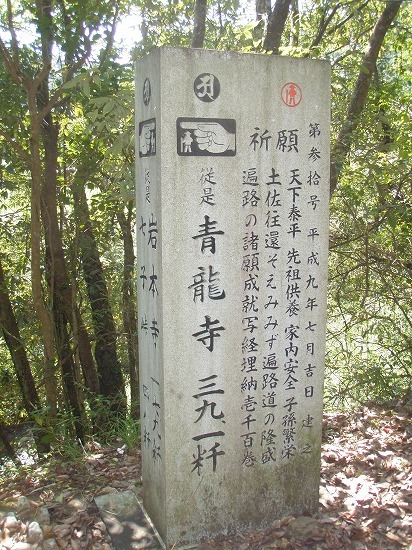 第参拾号 平成九年七月吉日 建之
祈願
天下泰平 先祖供養 家内安全 子孫繁栄
土佐往還そえみみず遍路道の隆盛
遍路の諸願成就写経埋納壱千百巻
従是 青龍寺 三九.一粁
従是
岩本寺
七子峠